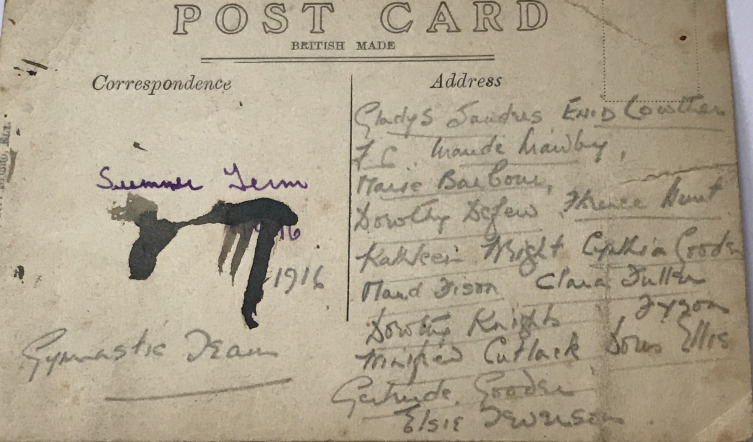 POST CARD
BRITISH MADE
Correspondence
Address
Summer Term
16
1916
Gymnastic Team
Gladys Sandres Enid Lowther
F.C. Maude Mawby,
Marie Barbour,
Dorothy Florence Hunt
Kathleen Wright Cynthia
Maud Tison Clara Fuller
Dorothy Knights Tyzon
Winifred Cutlack Doris Ellis
Gertrude
Elsie